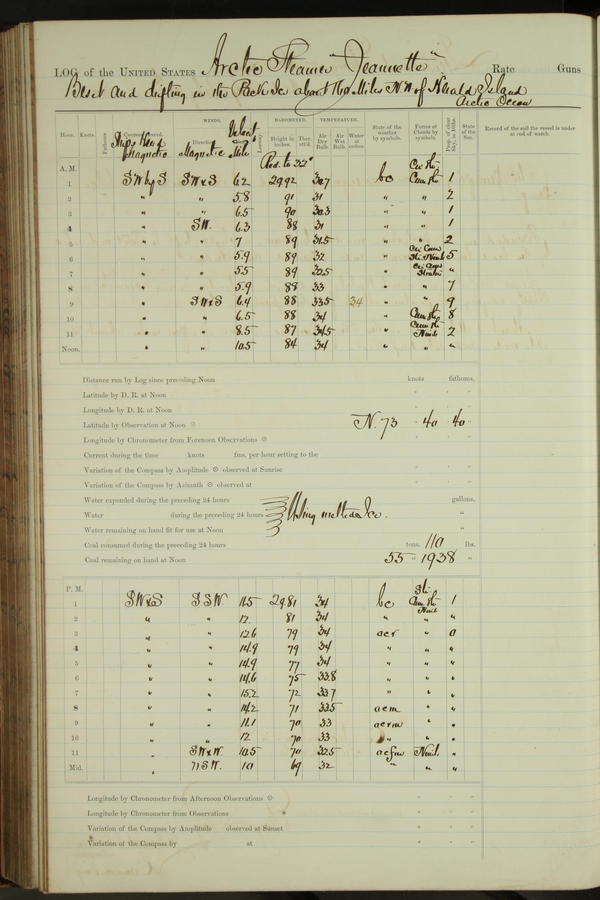 LOG of the UNITED STATES Arctic Steamer "Jeannette" Rate Guns
Beset and drifting in the Pack Ice about 160 Miles NW of Herald Island
Arctic Ocean
WINDS. BAROMETER. TEMPERATURE.
Hour. Knots. Fathoms. Courses Steered. Direction. Leeway. Height in inches. Ther. att'd. Air Dry Bulb. Air Wet Bulb. Water at surface. State of the weather by symbols. Forms of Clouds by symbols. Prop. of clear Sky, in 10ths. State of the Sea. Record of the sail the vessel is under at end of watch.
Ships Head Magnetic Magnetic Red. to 32°
A. M.
1 SW by S SW x S 6.2 29.92 30.7 bc Cum Str 1
2 " " 5.8 91 31 " " 2
3 " " 6.5 90 30.3 " " 1
4 " SW. 6.3 88 31 " " 1
5 " " 7 89 31.5 " " 2
6 " " 5.9 89 32 " Cir Cum Str. Nimb 5
7 " " 5.5 89 32.5 " Cir Cum Stratus "
8 " " 5.9 88 33 " " 7
9 " SW x S 6.4 88 33.5 34 " " 9
10 " " 6.5 88 34 " Cum Str 8
11 " " 8.5 87 34.5 " Cum Str Nimb 2
Noon. " " 10.5 84 34 " " "
Distance run by Log since preceding Noon knots fathoms.
Latitude by D. R. at Noon
Longitude by D. R. at Noon
Latitude by Observation at Noon N. 73 40 40
Longitude by Chronometer from Forenoon Observations
Current during the time knots fms. per hour setting to the
Variation of the Compass by Amplitude observed at Sunrise
Variation of the Compass by Azimuth observed at
Water expended during the preceding 24 hours gallons.
Water during the preceding 24 hours Using melted Ice. "
Water remaining on hand fit for use at Noon "
Coal consumed during the preceding 24 hours tons. 110 lbs.
Coal remaining on hand at Noon 55 " 1938 "
P. M.
1 SW x S SSW 11.5 29.81 34 bc Str. Cum Str Nimb 1
2 " " 12. 81 34 " " "
3 " " 12.6 79 34 acr " 0
4 " " 14.9 79 34 " " "
5 " " 14.9 77 34 " " "
6 " " 14.6 75 33.8 " " "
7 " " 15.2 72 33.7 " " "
8 " " 14.2 71 33.5 acm " "
9 " " 11.1 70 33 acrm " "
10 " " 12 70 33 " " "
11 " SW x W. 10.5 70 32.5 Nimb. "
Mid. " WSW. 10 69 32 " " "
Longitude by Chronometer from Afternoon Observations
Longitude by Chronometer from Observations
Variation of the Compass by Amplitude observed at Sunset
Variation of the Compass by at